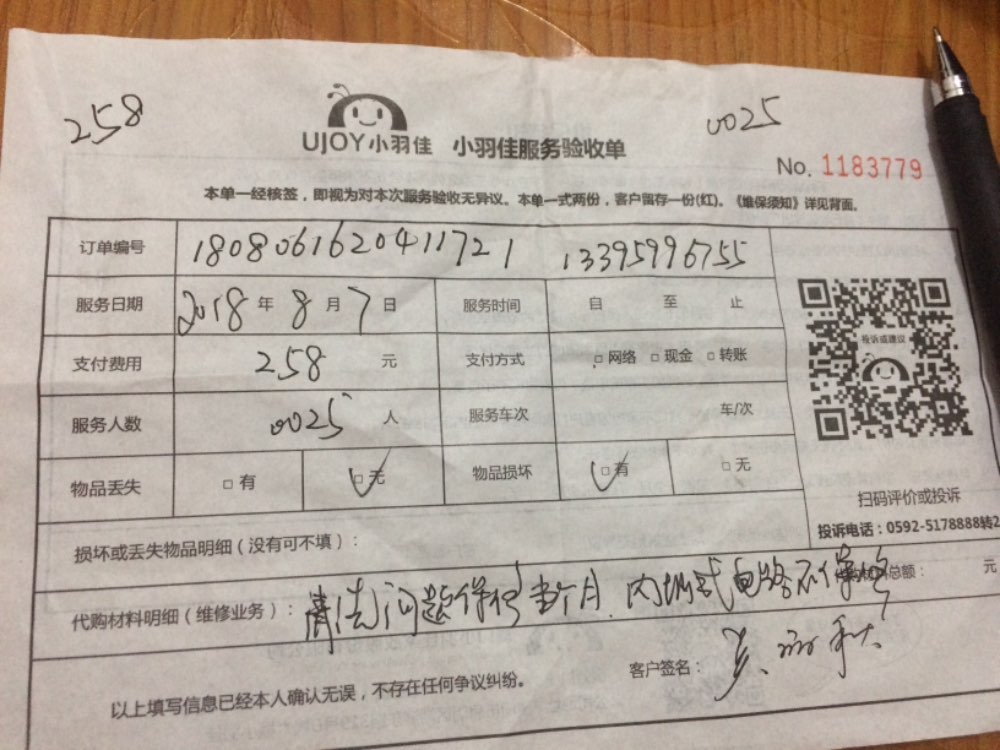 258
0025
UJOY小羽佳 小羽佳服务验收单
No. 1183779
本单一经核签，即视为对本次服务验收无异议。本单一式两份，客户留存一份(红)。《维保须知》详见背面。
订单编号 1808061620411721 13395996755
服务日期 2018年8月7日 服务时间 自 至 止
支付费用 258 元 支付方式 □网络 □现金 □转账
服务人数 0025 人 服务车次 车/次
物品丢失 □有 □无 物品损坏 □有 □无
投诉或建议
扫码评价或投诉
投诉电话：0592-5178888转2
损坏或丢失物品明细（没有可不填）：
代购材料总额： 元
代购材料明细（维修业务）：清洗问题保 个月 内 式电路不保
客户签名：
以上填写信息已经本人确认无误，不存在任何争议纠纷。